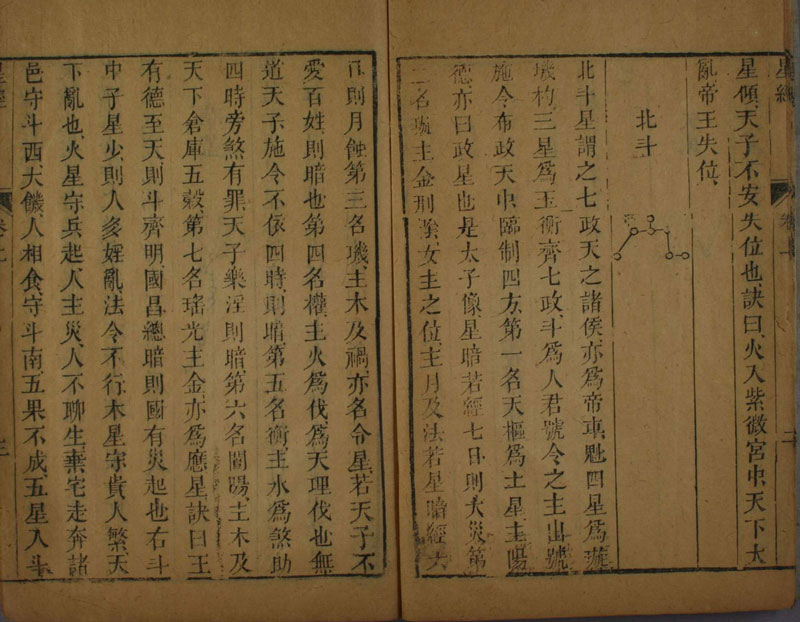 星經
卷上
星傾、天子不安失位也、訣曰、火入紫微宮中、天下大
亂帝王失位、
北斗
北斗星謂之七政、天之諸侯、亦爲帝車、魁四星爲璇
璣、杓三星爲玉衡、齊七政、斗爲人君號令之主、出號
施令、布政天中、臨制四方、第一名天樞、爲土星、主陽
德、亦曰政星也、是太子像、星暗若經七日、則大災、第
二名璇、主金刑隂、女主之位、主月及法、若星暗經六
日、則月蝕、第三名璣、主木及禍、亦名令星、若天子不
愛百姓、則暗也、第四名權、主火爲伐、爲天理伐也、無
道天子、施令不依四時、則暗、第五名衡、主水爲煞、助
四時旁煞有罪、天子樂淫則暗、第六名闓陽、主木及
天下倉庫五穀、第七名瑤光、主金、亦爲應星、訣曰、王
有德至天、則斗齊明國昌、總暗則國有災起也、右斗
中子星少、則人多婬亂、法令不行、木星守、貴人繁、天
下亂也、火星守、兵起、人主災、人不聊生、棄宅走奔諸
邑、守斗西、大饑、人相食、守斗南、五果不成、五星入斗